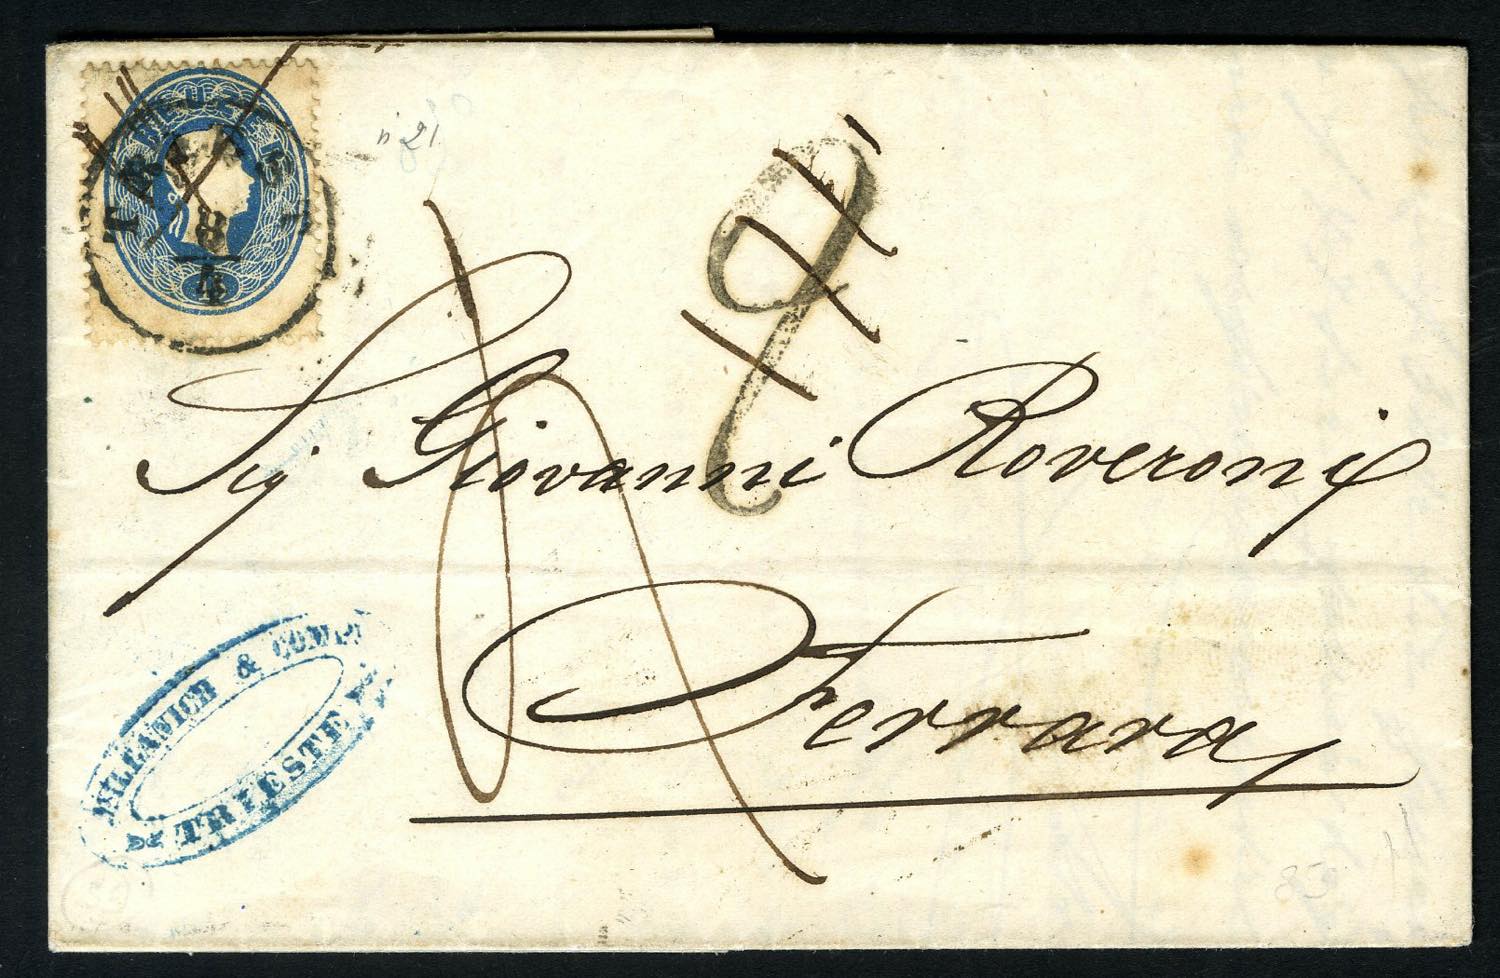 TRIEST
8
4
n 21
2
Sig Giovanni Roveroni
Ferrara
MILLANICH & COMP.
TRIESTE
83